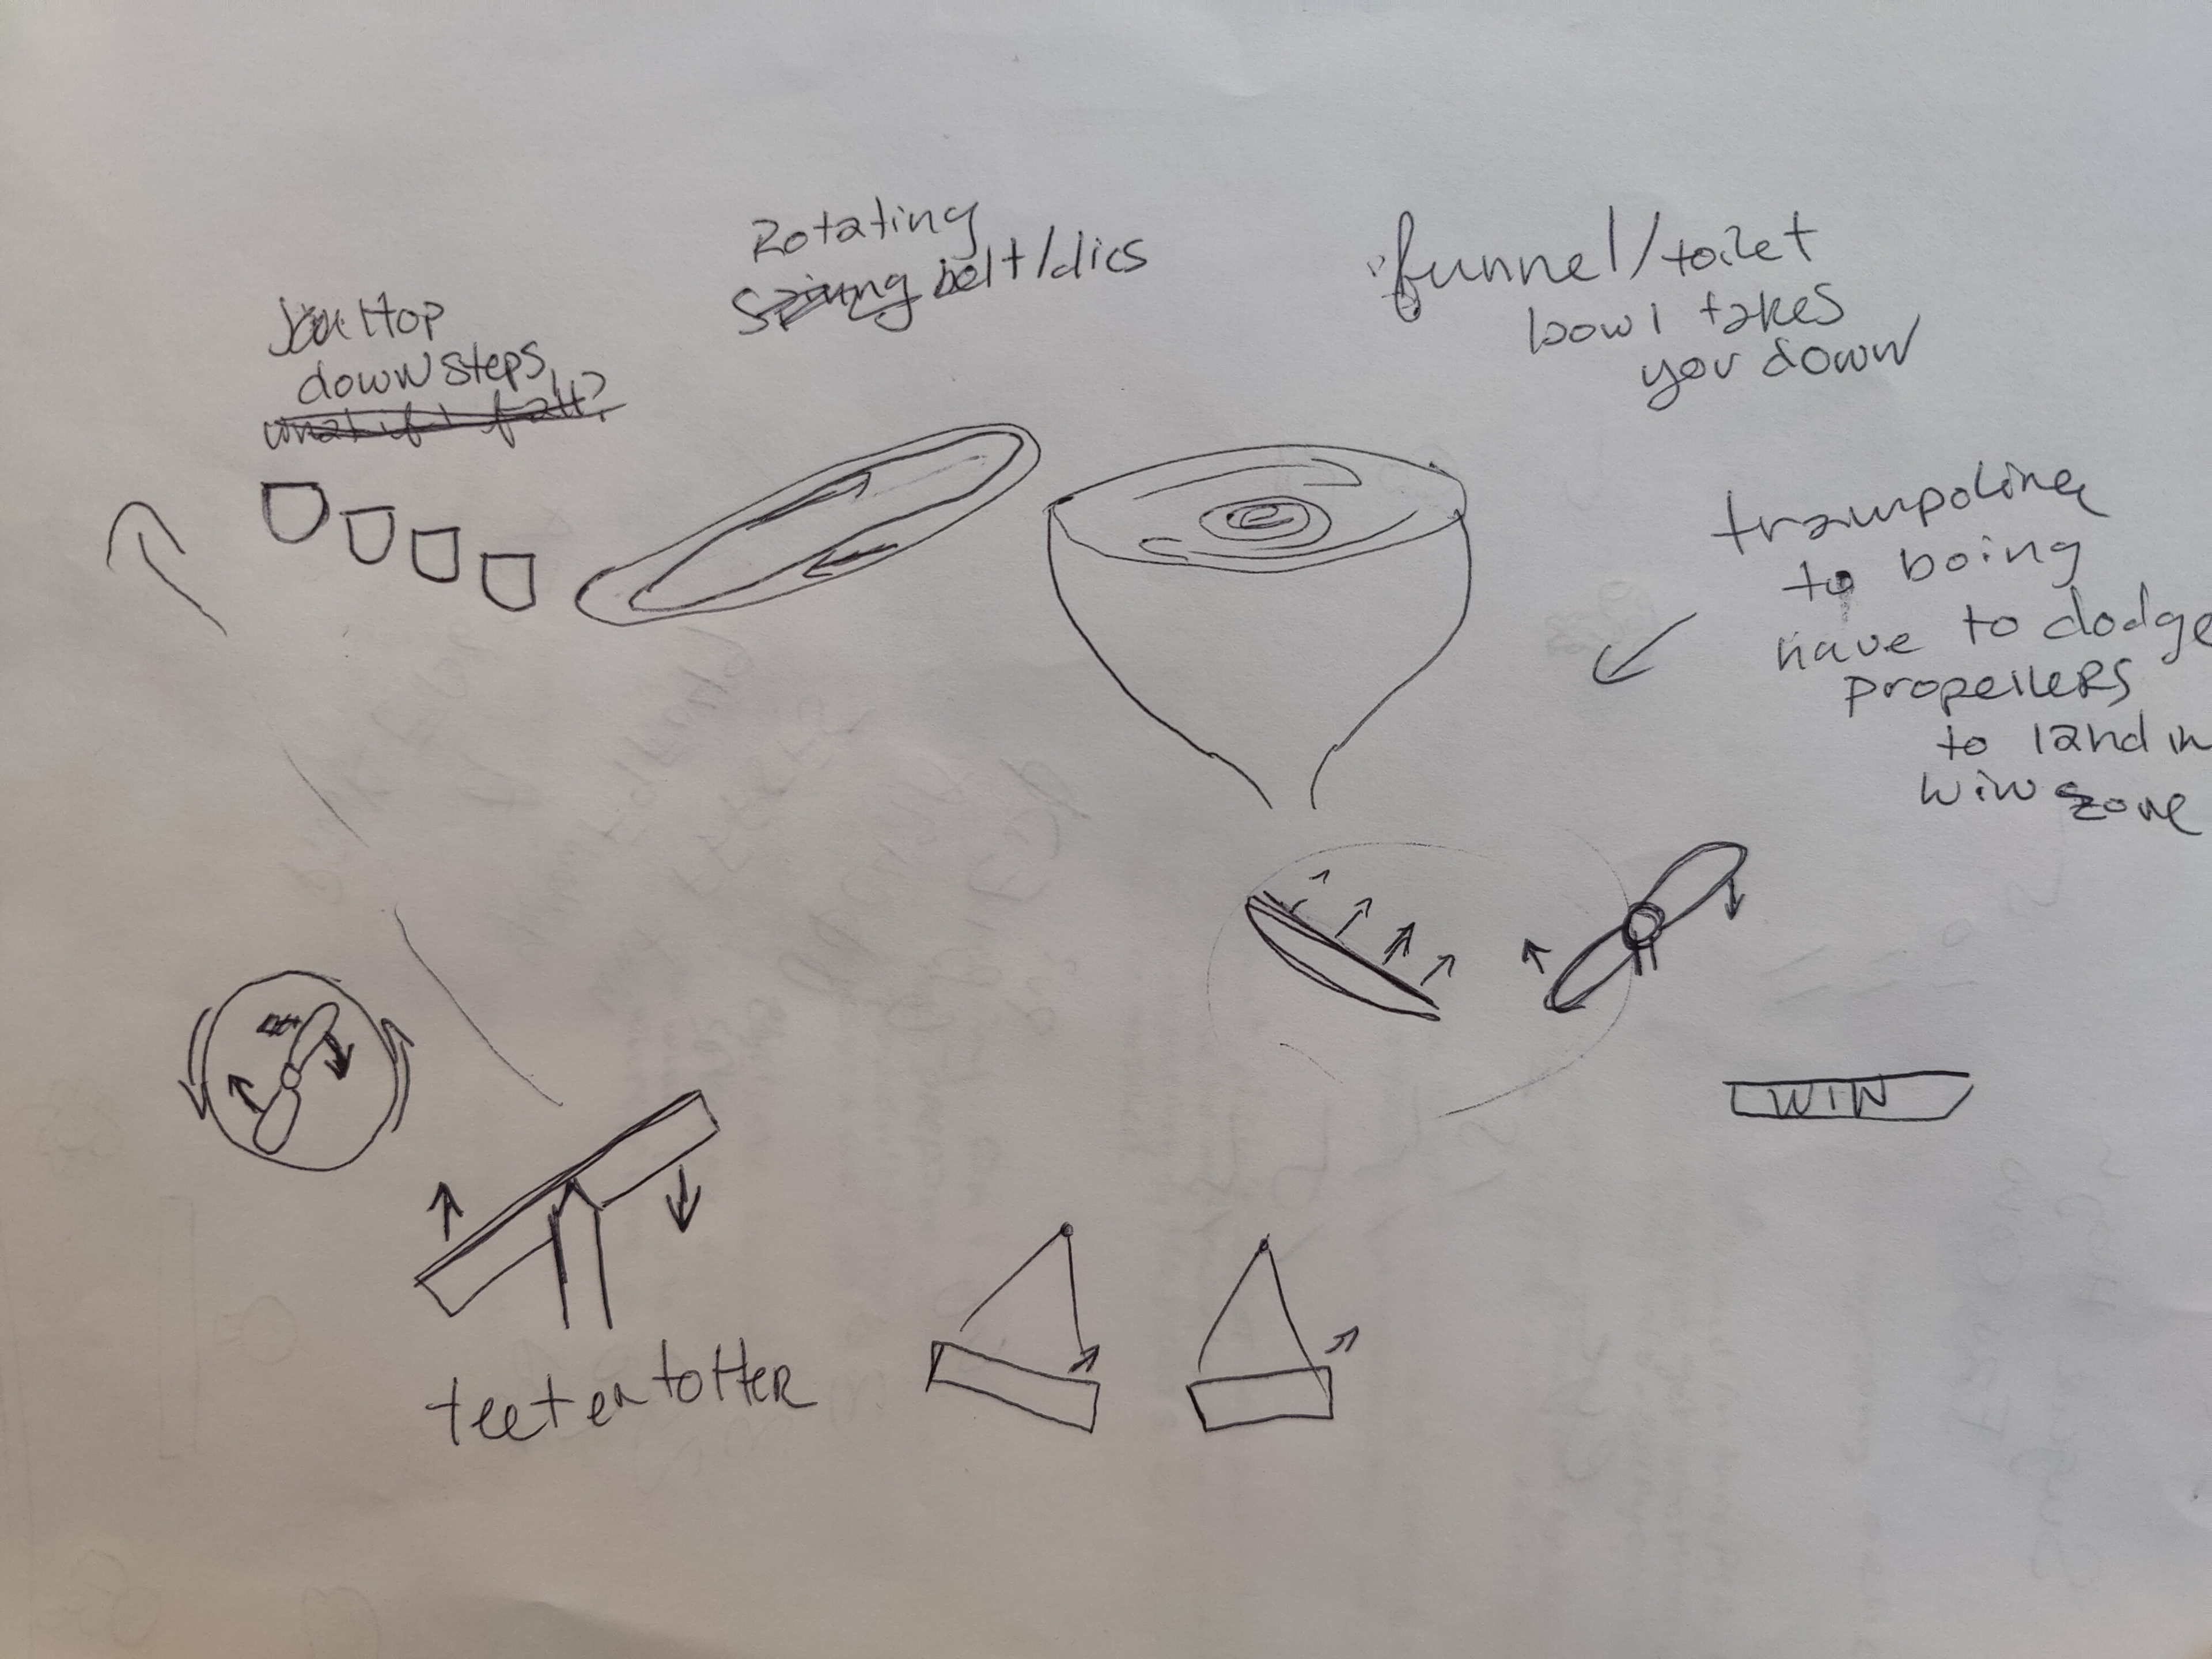 You Hop
down steps,
what if I fall?
Rotating
Spinng belt/dics
funnel/toilet
bowl takes
you down
trampoline
to boing
have to dodge
propellers
to land in
win zone
WIN
teeter totter